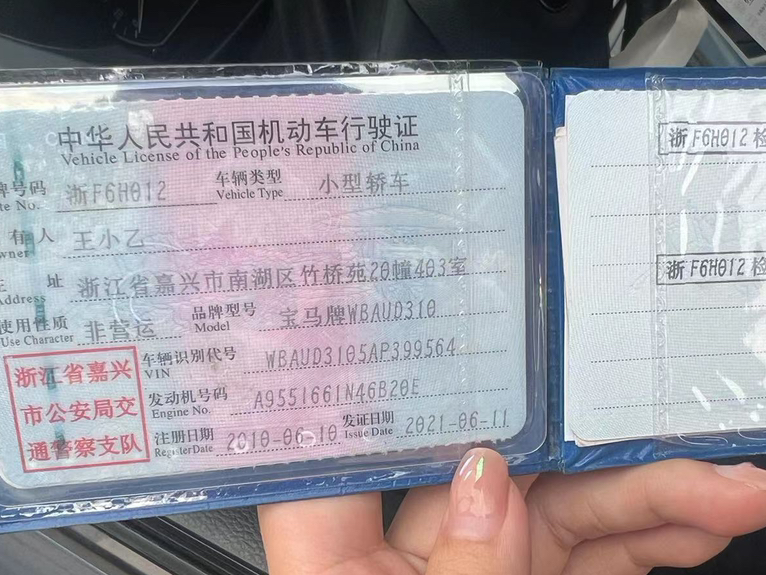 中华人民共和国机动车行驶证
Vehicle License of the People's Republic of China
牌号码 浙F6H012 车辆类型 小型轿车
te No. Vehicle Type
有人 王小乙
wner
址 浙江省嘉兴市南湖区竹桥苑20幢403室
Address
使用性质 非营运 品牌型号 宝马牌WBAUD310
Use Character Model
车辆识别代号 WBAUD3105AP399564
VIN
发动机号码 A9551661N46B20E
Engine No.
注册日期 2010-06-10 发证日期 2021-06-11
Register Date Issue Date
浙江省嘉兴
市公安局交
通警察支队
浙F6H012检
浙F6H012检